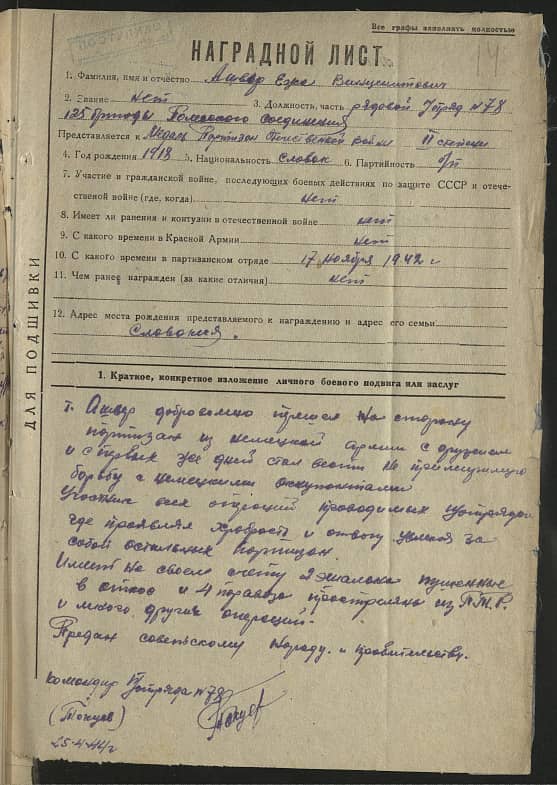 Все графы заполнять полностью
14
НАГРАДНОЙ ЛИСТ
1. Фамилия, имя и отчество Ашвер Езра Винцентович
2. Звание нет 3. Должность, часть рядовой Iотряд №78
125 бригады Гомельского соединения
Представляется к Медаль Партизан Отечественной войны II степени
4. Год рождения 1918 5. Национальность Словак 6. Партийность б/п
7. Участие в гражданской войне, последующих боевых действиях по защите СССР и отече-
ственной войне (где, когда) нет
8. Имеет ли ранения и контузии в отечественной войне нет
9. С какого времени в Красной Армии нет
10. С какого времени в партизанском отряде 17 ноября 1942 г
11. Чем ранее награжден (за какие отличия) нет
12. Адрес места рождения представляемого к награждению и адрес его семьи
Словакия.
ДЛЯ ПОДШИВКИ
1. Краткое, конкретное изложение личного боевого подвига или заслуг
т. Ашвер добровольно пришел на сторону
партизан из немецкой армии с оружием
и с первых же дней стал вести не примиримую
борьбу с немецкими оккупантами
Участник всех операций проводимых отрядом
где проявлял храбрость и отвагу увлекая за
собой остальных партизан
Имеет на своем счету 2 эшалона пущенные
в откос и 4 паравоза прострелены из П.Т.Р.
и много других операций.
Предан советскому народу и правительству.
Командир отряда №78
(Токуев)
25-4-44г